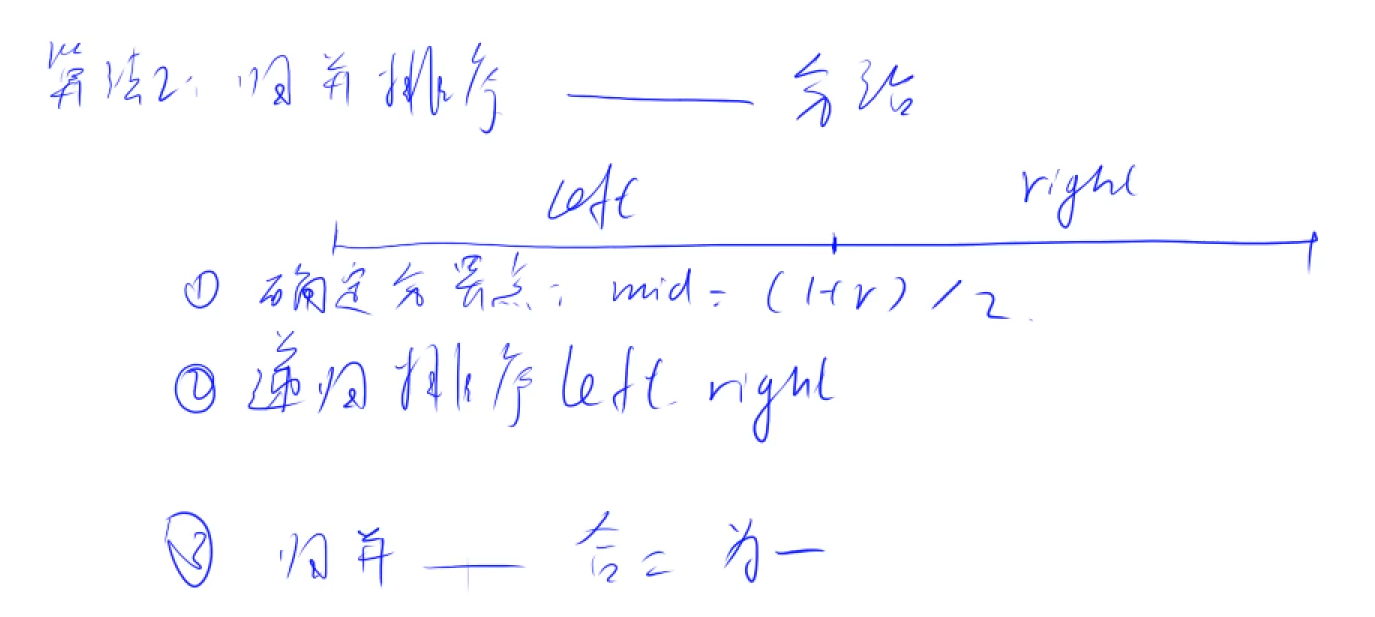 算法2: 归并排序 —— 分治
left right
① 确定分界点: mid = (l+r) / 2
② 递归排序 left right
③ 归并 —— 合二为一